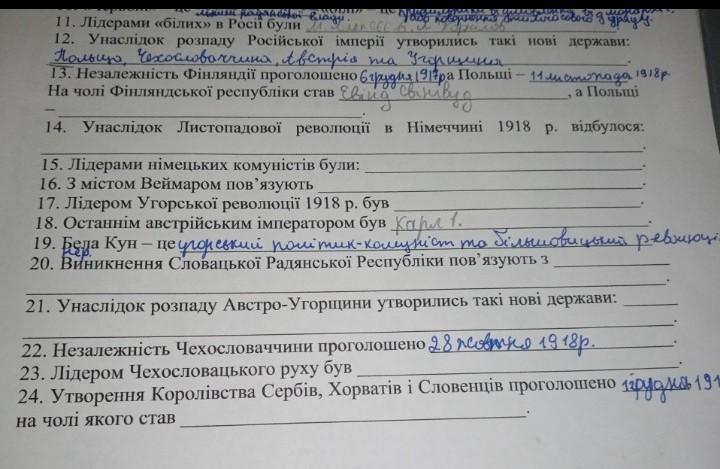 11. Лідерами «білих» в Росії були
12. Унаслідок розпаду Російської імперії утворились такі нові держави:
Польща, Чехословаччина, Австрія та Угорщина
13. Незалежність Фінляндії проголошено 6 грудня 1917р а Польщі – 11 листопада 1918р.
На чолі Фінляндської республіки став Евінд Свінгвуд, а Польщі
– .
14. Унаслідок Листопадової революції в Німеччині 1918 р. відбулося:
.
15. Лідерами німецьких комуністів були: .
16. З містом Веймаром пов’язують .
17. Лідером Угорської революції 1918 р. був .
18. Останнім австрійським імператором був Карл 1. .
19. Бела Кун – це угорський політик-комуніст та більшовицький революціо
нер.
20. Виникнення Словацької Радянської Республіки пов’язують з
.
21. Унаслідок розпаду Австро-Угорщини утворились такі нові держави:
.
22. Незалежність Чехословаччини проголошено 28 жовтня 1918р. .
23. Лідером Чехословацького руху був .
24. Утворення Королівства Сербів, Хорватів і Словенців проголошено 1 грудня 191
на чолі якого став .